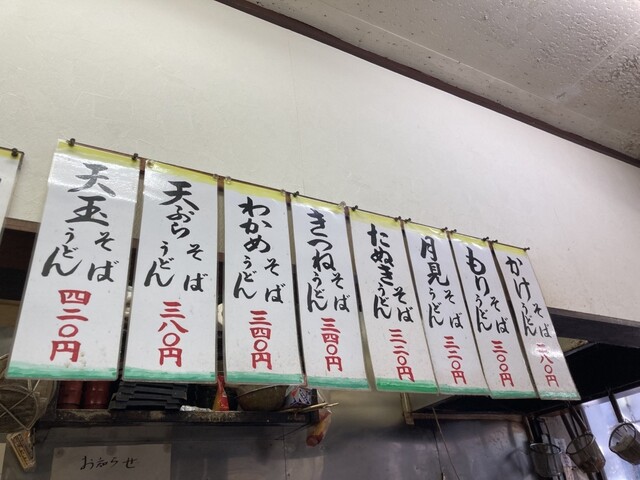 かけ
そば
うどん
二八〇円
もり
そば
うどん
三〇〇円
月見
そば
うどん
三三〇円
たぬき
そば
うどん
三二〇円
きつね
そば
うどん
三四〇円
わかめ
そば
うどん
三四〇円
天ぷら
そば
うどん
三八〇円
天玉
そば
うどん
四二〇円
お知らせ